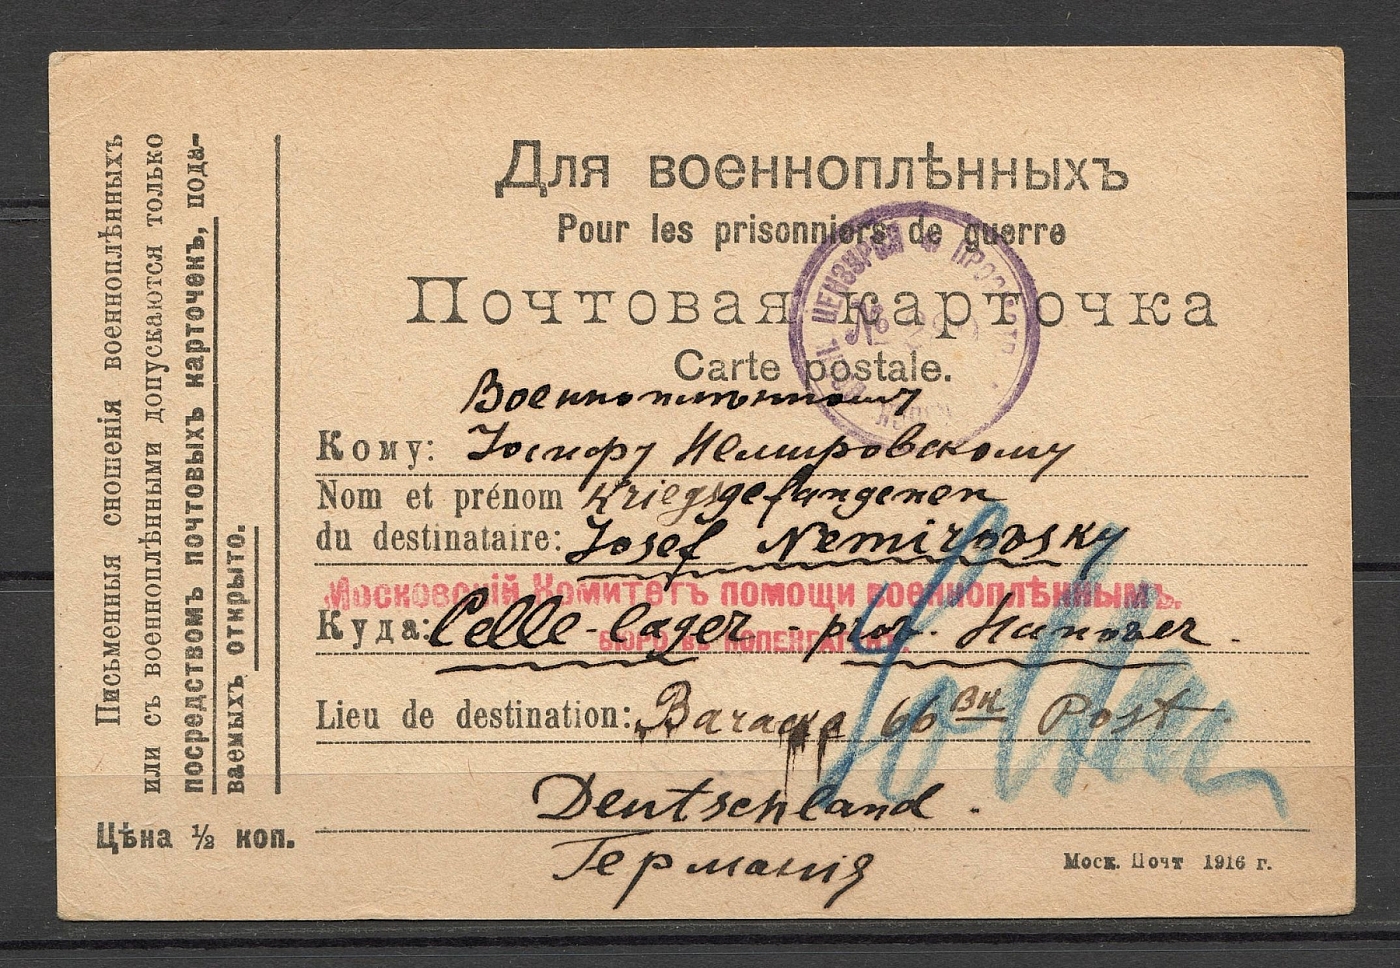 Письменныя сношенія военноплѣнныхъ
или съ военноплѣнными допускаются только
посредствомъ почтовыхъ карточекъ, пода-
ваемыхъ открыто.
Цѣна ½ коп.
Для военноплѣнныхъ
Pour les prisonniers de guerre
Почтовая карточка
Carte postale.
Военноплѣнному
Кому: Іосифу Немировскому
Nom et prénom Kriegsgefangenen
du destinataire: Josef Nemirovsky
Московскій Комитетъ помощи военноплѣннымъ.
Куда: Celle-Lager - prov. Hanover.
Бюро въ Копенгагенѣ.
Lieu de destination: Baracke 66 Post.
Deutschland.
Германія
Моск. Почт 1916 г.
ЦЕНЗУРНА
№